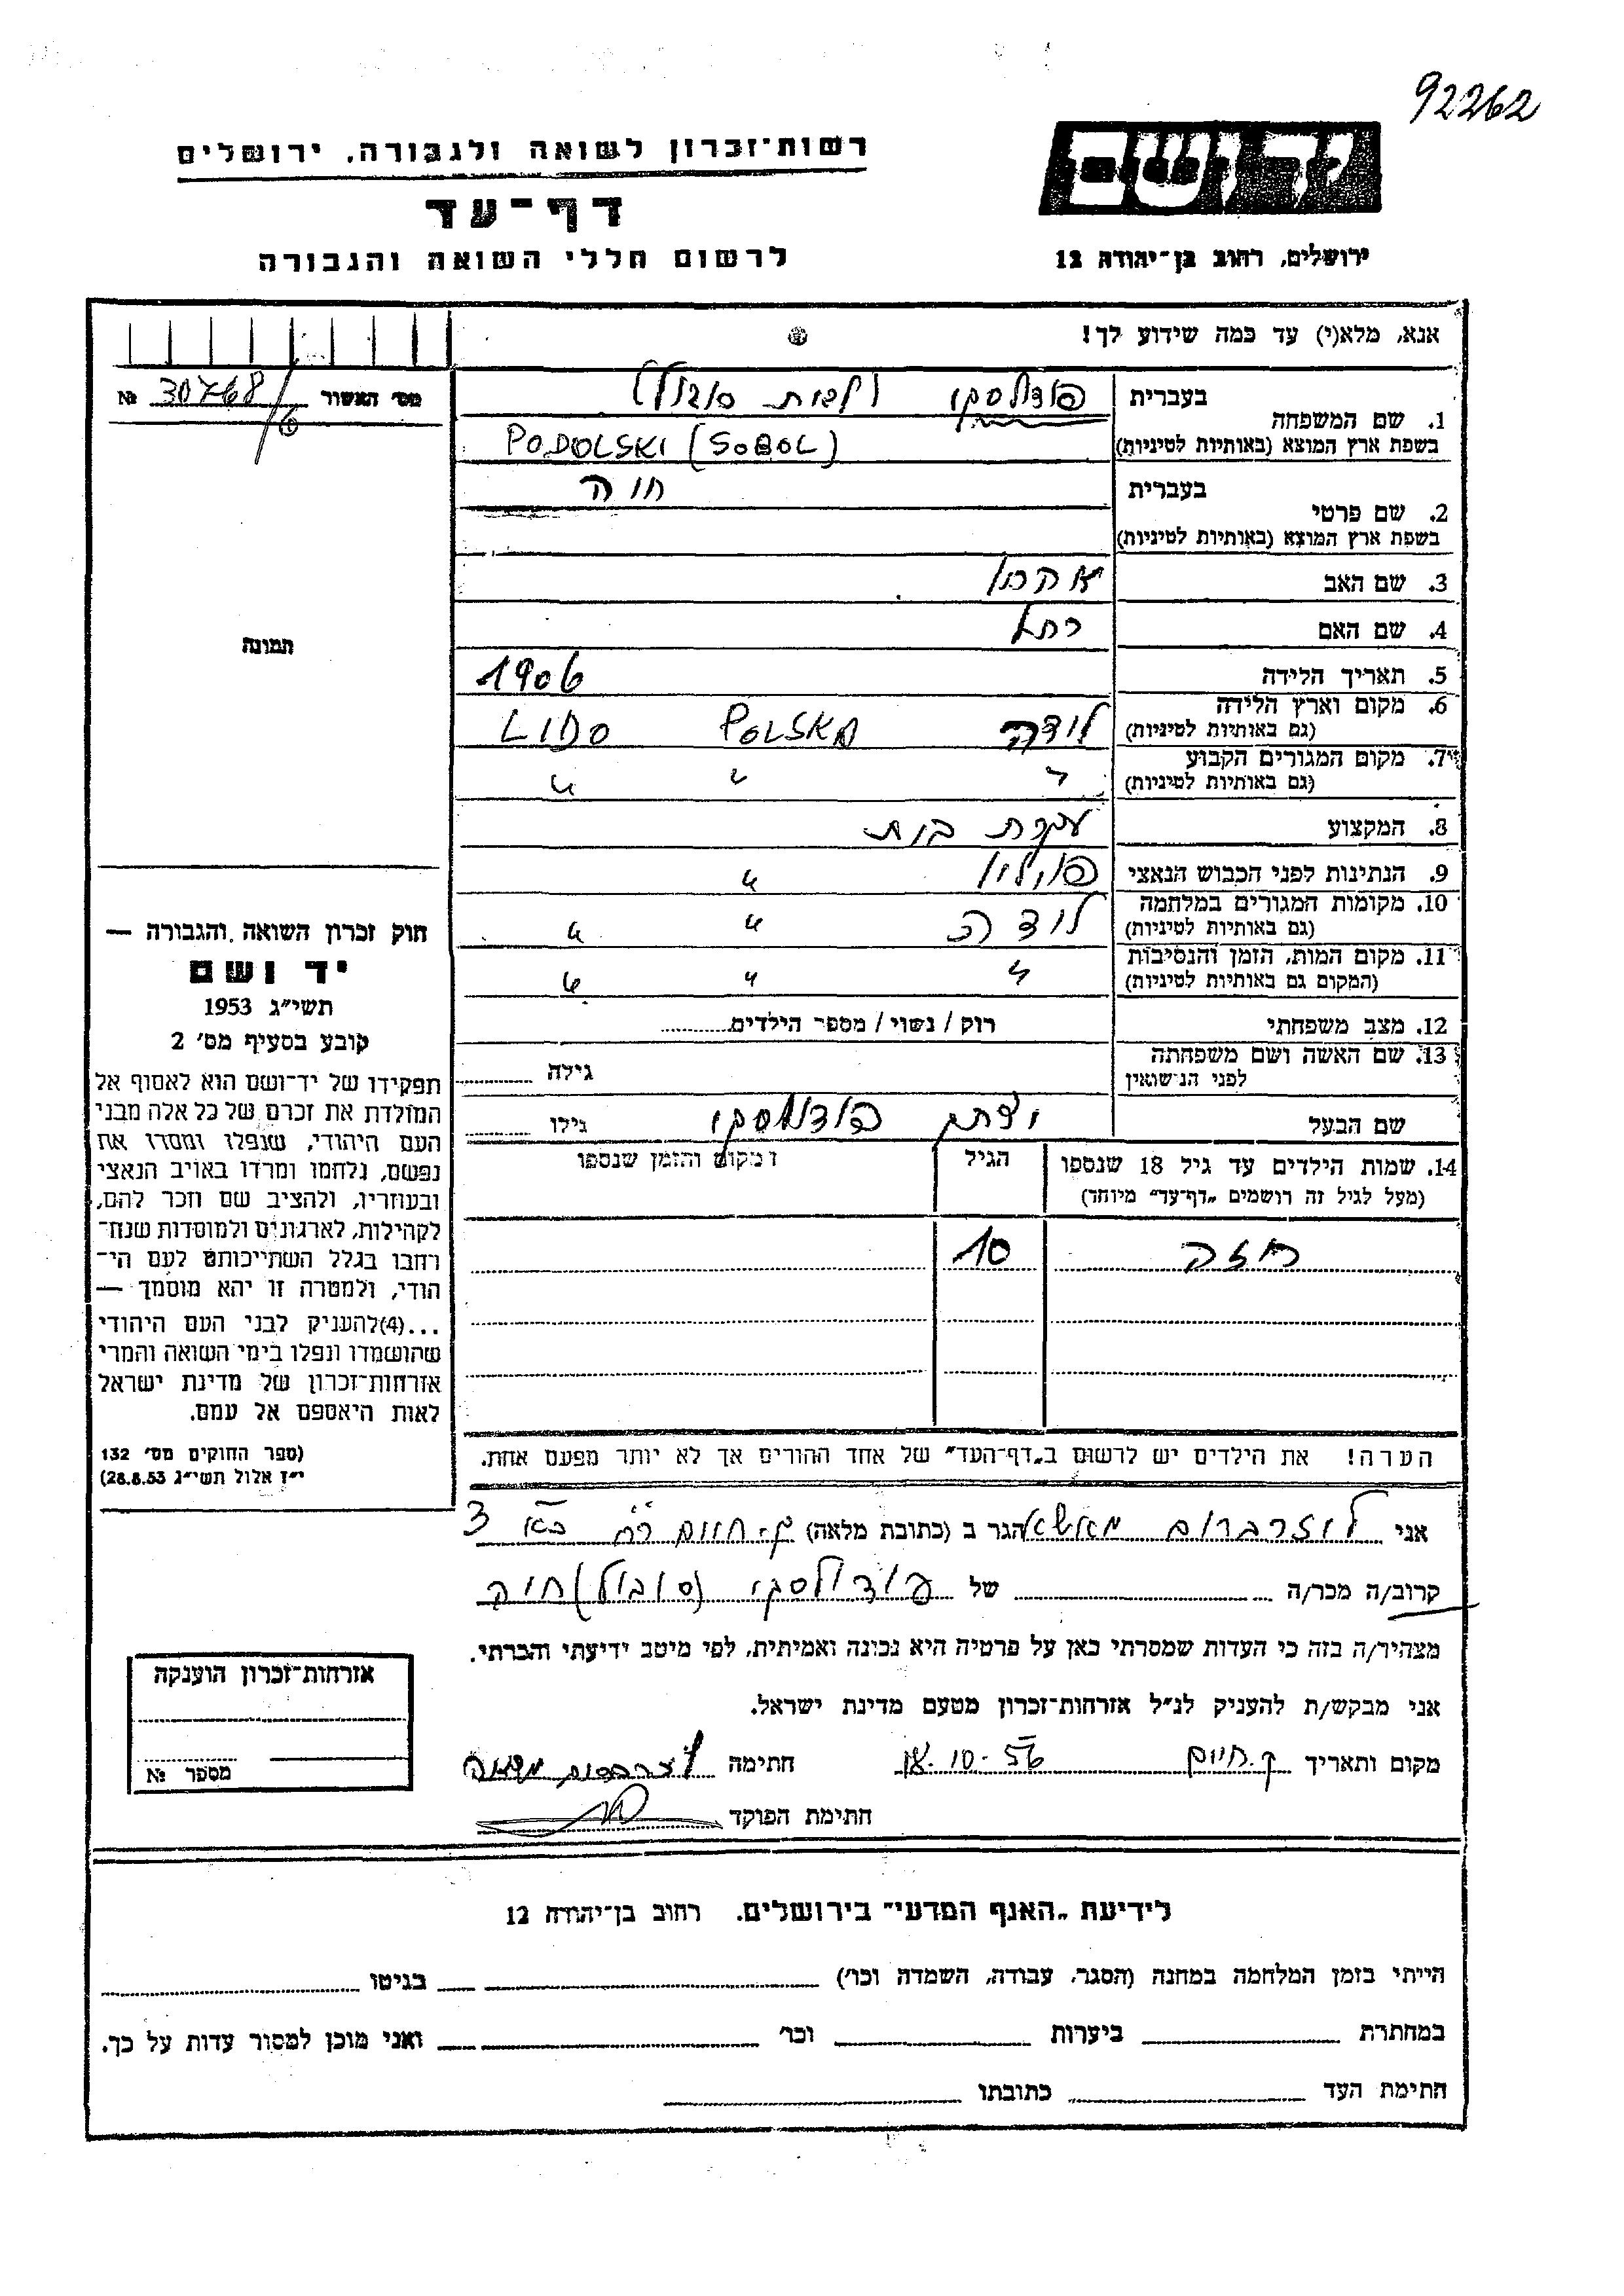 92262
רשות־זכרון לשואה ולגבורה, ירושלים
יד ושם
דף־עד
לרשום חללי השואה והגבורה
ירושלים, רחוב בן־יהודה 12
אנא, מלא(י) עד כמה שידוע לך!
מס' האשור № 30768/6
1. שם המשפחה
בעברית פודולסקי (לבית סובול)
בשפת ארץ המוצא (באותיות לטיניות) PODOLSKI (SOBOL)
2. שם פרטי
בעברית חיה
בשפת ארץ המוצא (באותיות לטיניות)
3. שם האב
4. שם האם רחל
5. תאריך הלידה 1906
6. מקום וארץ הלידה
(גם באותיות לטיניות) לידה POLSKA LIDO
7. מקום המגורים הקבוע
(גם באותיות לטיניות) " " "
8. המקצוע עקרת בית
9. הנתינות לפני הכבוש הנאצי פולין "
10. מקומות המגורים במלחמה
(גם באותיות לטיניות) לידה " "
11. מקום המות, הזמן והנסיבות
(המקום גם באותיות לטיניות) " " "
12. מצב משפחתי רוק / נשוי / מספר הילדים
13. שם האשה ושם משפחתה
לפני הנישואין גילה
שם הבעל יצחק פודולסקי גילו
14. שמות הילדים עד גיל 18 שנספו
(מעל לגיל זה רושמים „דף־עד" מיוחד)
הגיל
מקום והזמן שנספו
10
הערה! את הילדים יש לרשום ב„דף־העד" של אחד ההורים אך לא יותר מפעם אחת.
תמונה
חוק זכרון השואה והגבורה —
יד ושם
תשי"ג 1953
קובע בסעיף מס' 2
תפקידו של יד־ושם הוא לאסוף אל
המולדת את זכרם של כל אלה מבני
העם היהודי, שנפלו ומסרו את
נפשם, נלחמו ומרדו באויב הנאצי
ובעוזריו, ולהציב שם וזכר להם,
לקהילות, לארגונים ולמוסדות שנח־
רבו בגלל השתייכותם לעם הי־
הודי, ולמטרה זו יהא מוסמך —
...(4)להעניק לבני העם היהודי
שהושמדו ונפלו בימי השואה והמרי
אזרחות־זכרון של מדינת ישראל
לאות היאספם אל עמם.
(ספר החוקים מס' 132
י"ז אלול תשי"ג 28.8.53)
אני הגר ב (כתובת מלאה) ק. חיים
קרוב/ה מכר/ה של פודולסקי (סובול) חיה
מצהיר/ה בזה כי העדות שמסרתי כאן על פרטיה היא נכונה ואמיתית, לפי מיטב ידיעתי והכרתי.
אני מבקש/ת להעניק לנ"ל אזרחות־זכרון מטעם מדינת ישראל.
מקום ותאריך ק. חיים חתימה
חתימת הפוקד
אזרחות־זכרון הוענקה
מספר №
לידיעת „האגף המדעי" בירושלים. רחוב בן־יהודה 12
הייתי בזמן המלחמה במחנה (הסגר, עבודה, השמדה וכו') בגיטו
במחתרת ביערות וכו' ואני מוכן למסור עדות על כך.
חתימת העד כתובתו